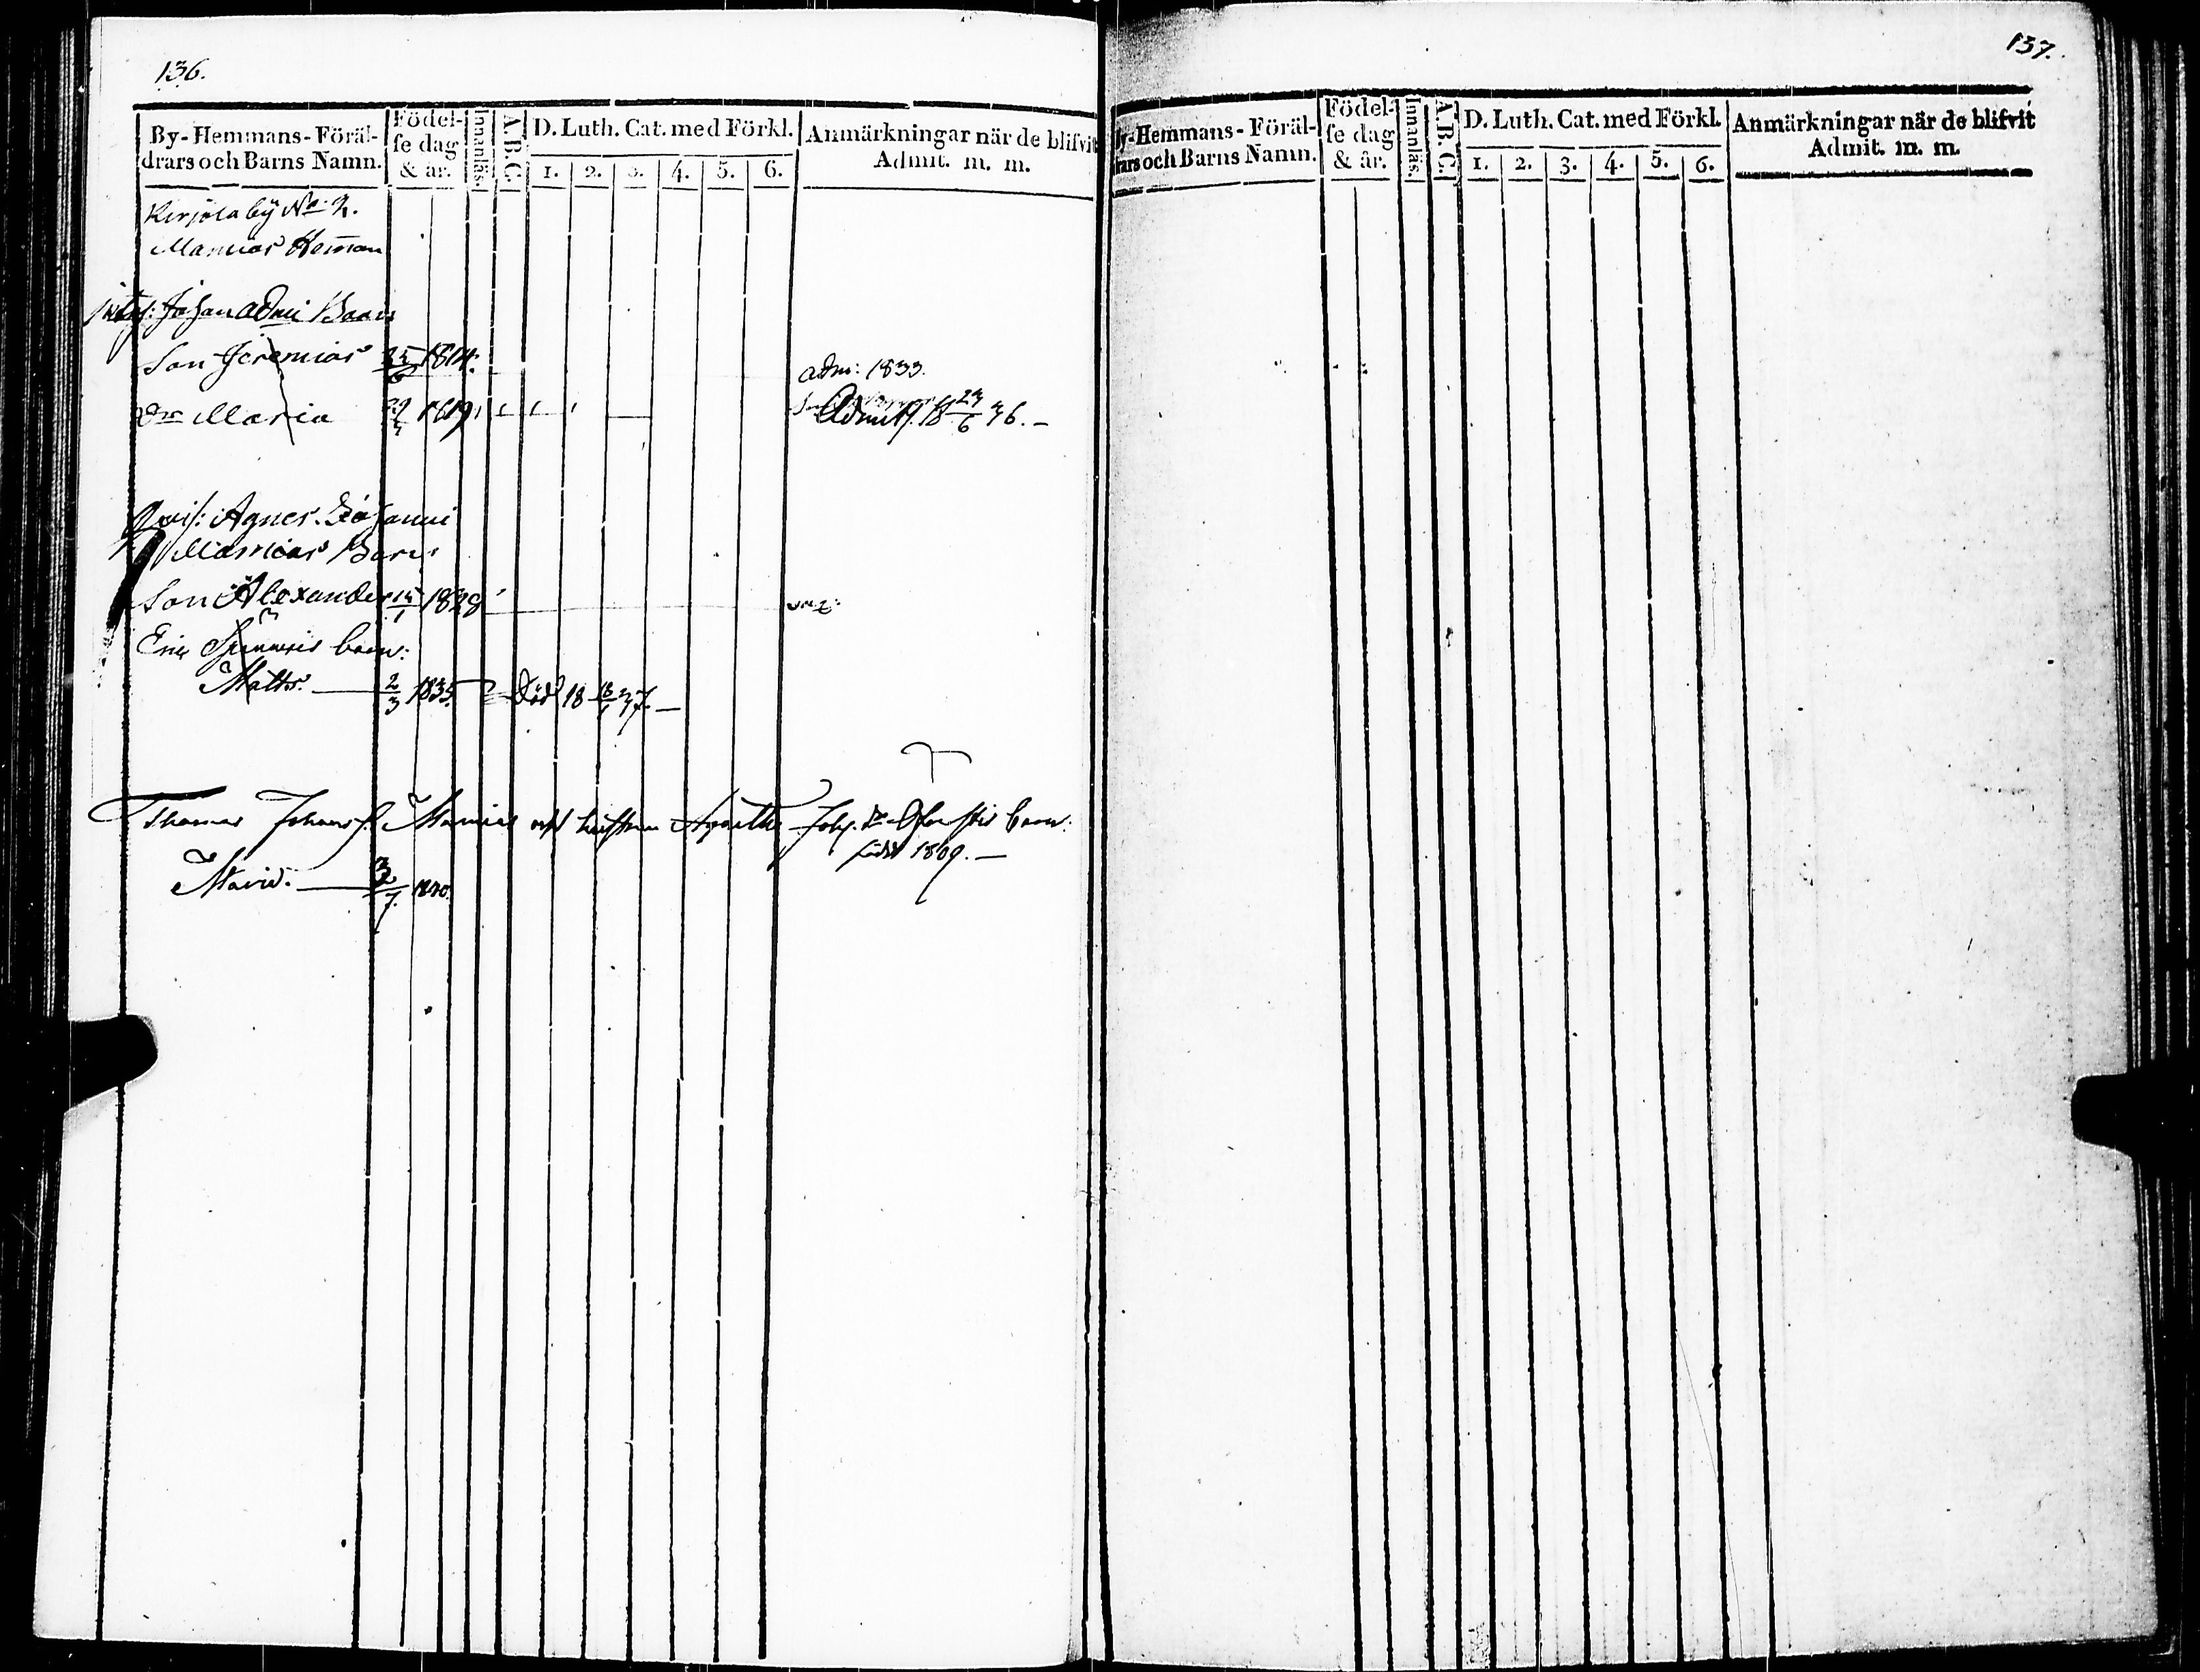 136.
By-Hemmans-Föräl-
drars och Barns Namn.
Födel-
se dag
& år.
Innanläs.
A.B.C.
D. Luth. Cat. med Förkl.
1. 2. 3. 4. 5. 6.
Anmärkningar när de blifvit
Admit. m. m.
Kirjola by No 2.
Mannias Heman
Johan Barn
Son Jeremias 25/6 1814. adm: 1833.
Dr Maria 1819 Admitt. 18 23/6 36. —
Agnes
Mannias Barn
Son Alexander 15/1 1828
Eric barn:
Matts. — 2/3 1835. Död 18 37. —
Thomas Johans s. Mannias och hustrun Agatha Joh. Dr barn:
född 1809. —
Maria. — 3/7. 1840.
137.
By-Hemmans-Föräl-
drars och Barns Namn.
Födel-
se dag
& år.
Innanläs.
A.B.C.
D. Luth. Cat. med Förkl.
1. 2. 3. 4. 5. 6.
Anmärkningar när de blifvit
Admit. m. m.